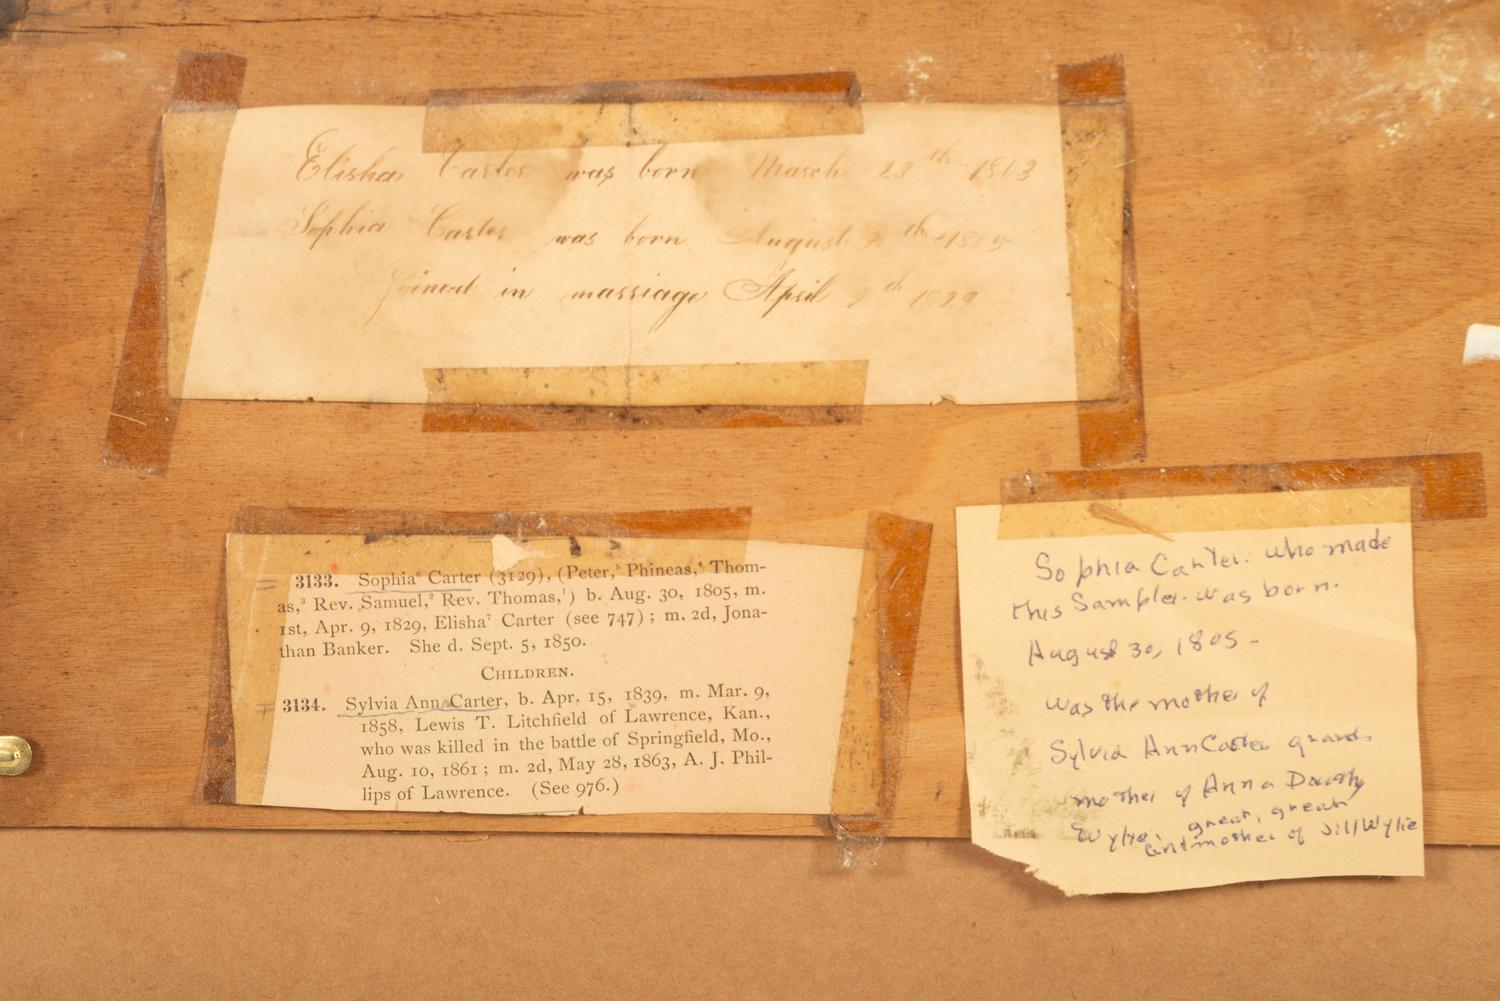 Elisha Carter was born March 23th 1803
Sophia Carter was born August 30th 1805
Joined in marriage April 9th 1829
3133. Sophia⁶ Carter (3129), (Peter,⁵ Phineas,⁴ Thom-
as,³ Rev. Samuel,² Rev. Thomas,¹) b. Aug. 30, 1805, m.
1st, Apr. 9, 1829, Elisha⁷ Carter (see 747); m. 2d, Jona-
than Banker. She d. Sept. 5, 1850.
CHILDREN.
3134. Sylvia Ann Carter, b. Apr. 15, 1839, m. Mar. 9,
1858, Lewis T. Litchfield of Lawrence, Kan.,
who was killed in the battle of Springfield, Mo.,
Aug. 10, 1861; m. 2d, May 28, 1863, A. J. Phil-
lips of Lawrence. (See 976.)
Sophia Carter. who made
this Sampler. was born.
August 30, 1805 -
was the mother of
Sylvia Ann Carter grand
mother of Anna
Wylie, great, great
mother of Jill Wylie